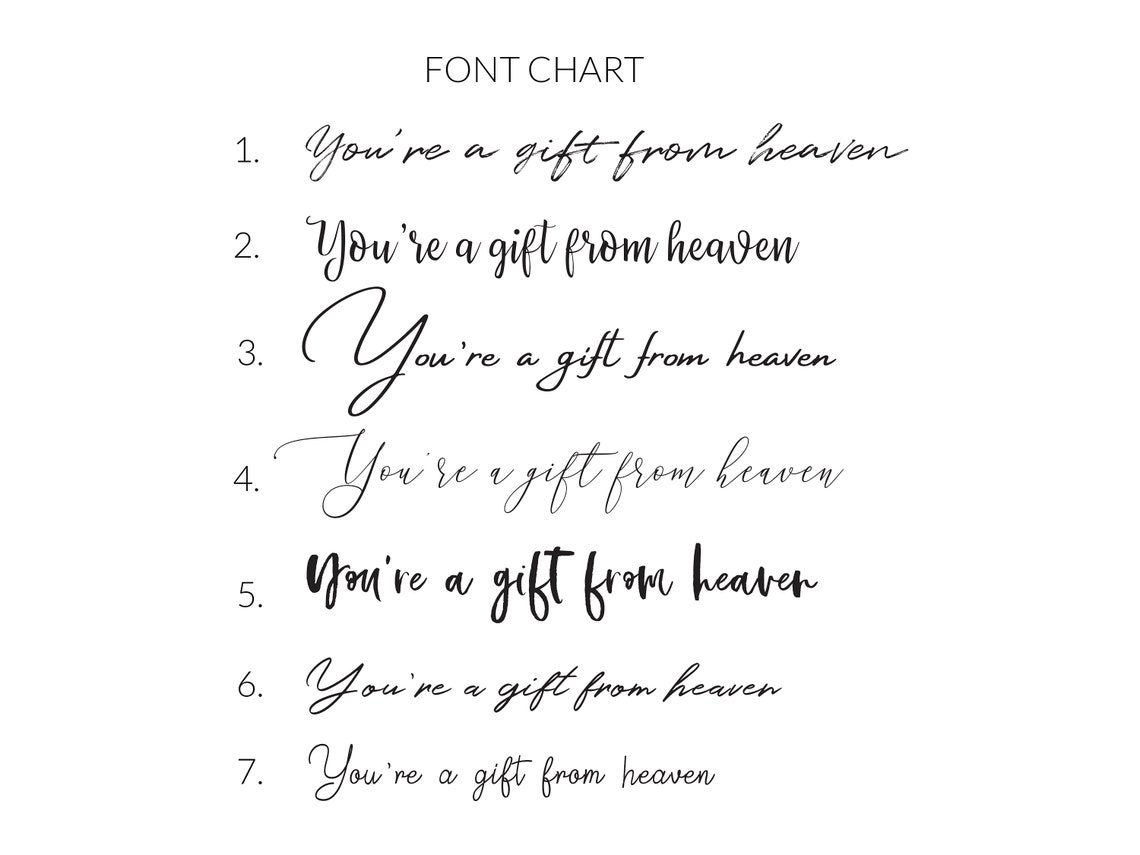 FONT CHART
1. You're a gift from heaven
2. You're a gift from heaven
3. You're a gift from heaven
4. You're a gift from heaven
5. You're a gift from heaven
6. You're a gift from heaven
7. You're a gift from heaven